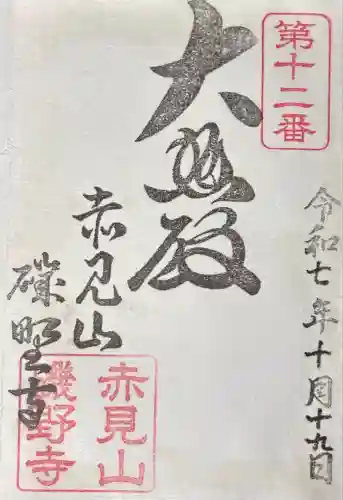 第十二番
令和七年十月十九日
大悲殿
赤見山
磯野寺
赤見山
磯野寺